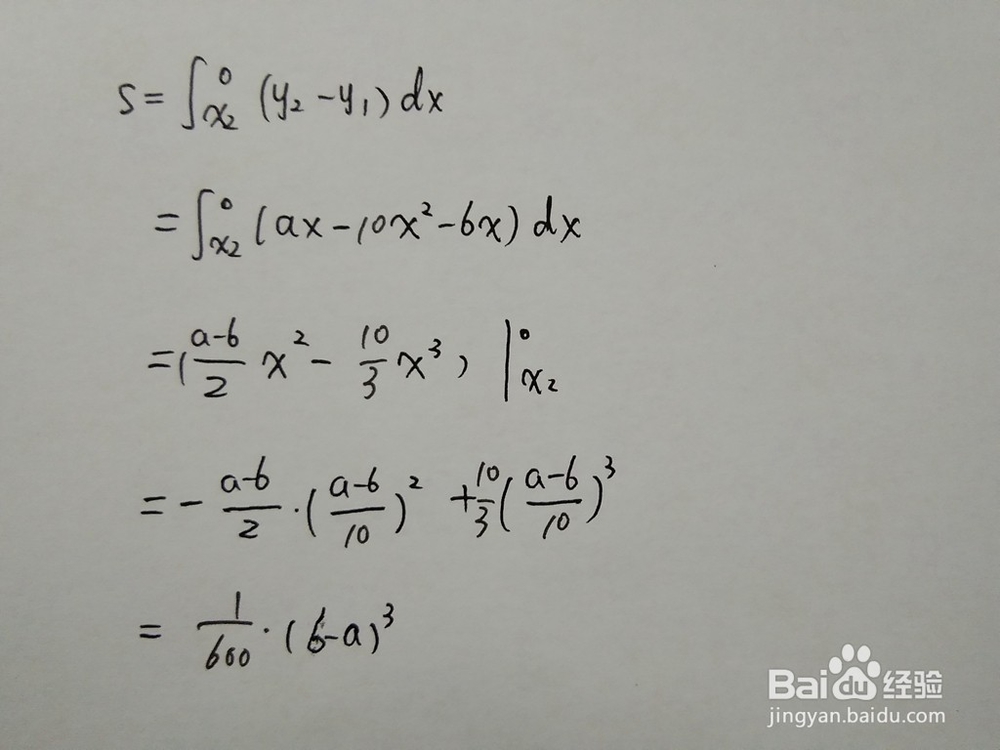 S = ∫_{x₂}^{0} (y₂ - y₁) dx
= ∫_{x₂}^{0} (ax - 10x² - 6x) dx
= (\frac{a-6}{2} x² - \frac{10}{3} x³) |_{x₂}^{0}
= - \frac{a-6}{2} · (\frac{a-6}{10})² + \frac{10}{3} (\frac{a-6}{10})³
= \frac{1}{600} · (6-a)³
Bai du 经验
jingyan.baidu.com